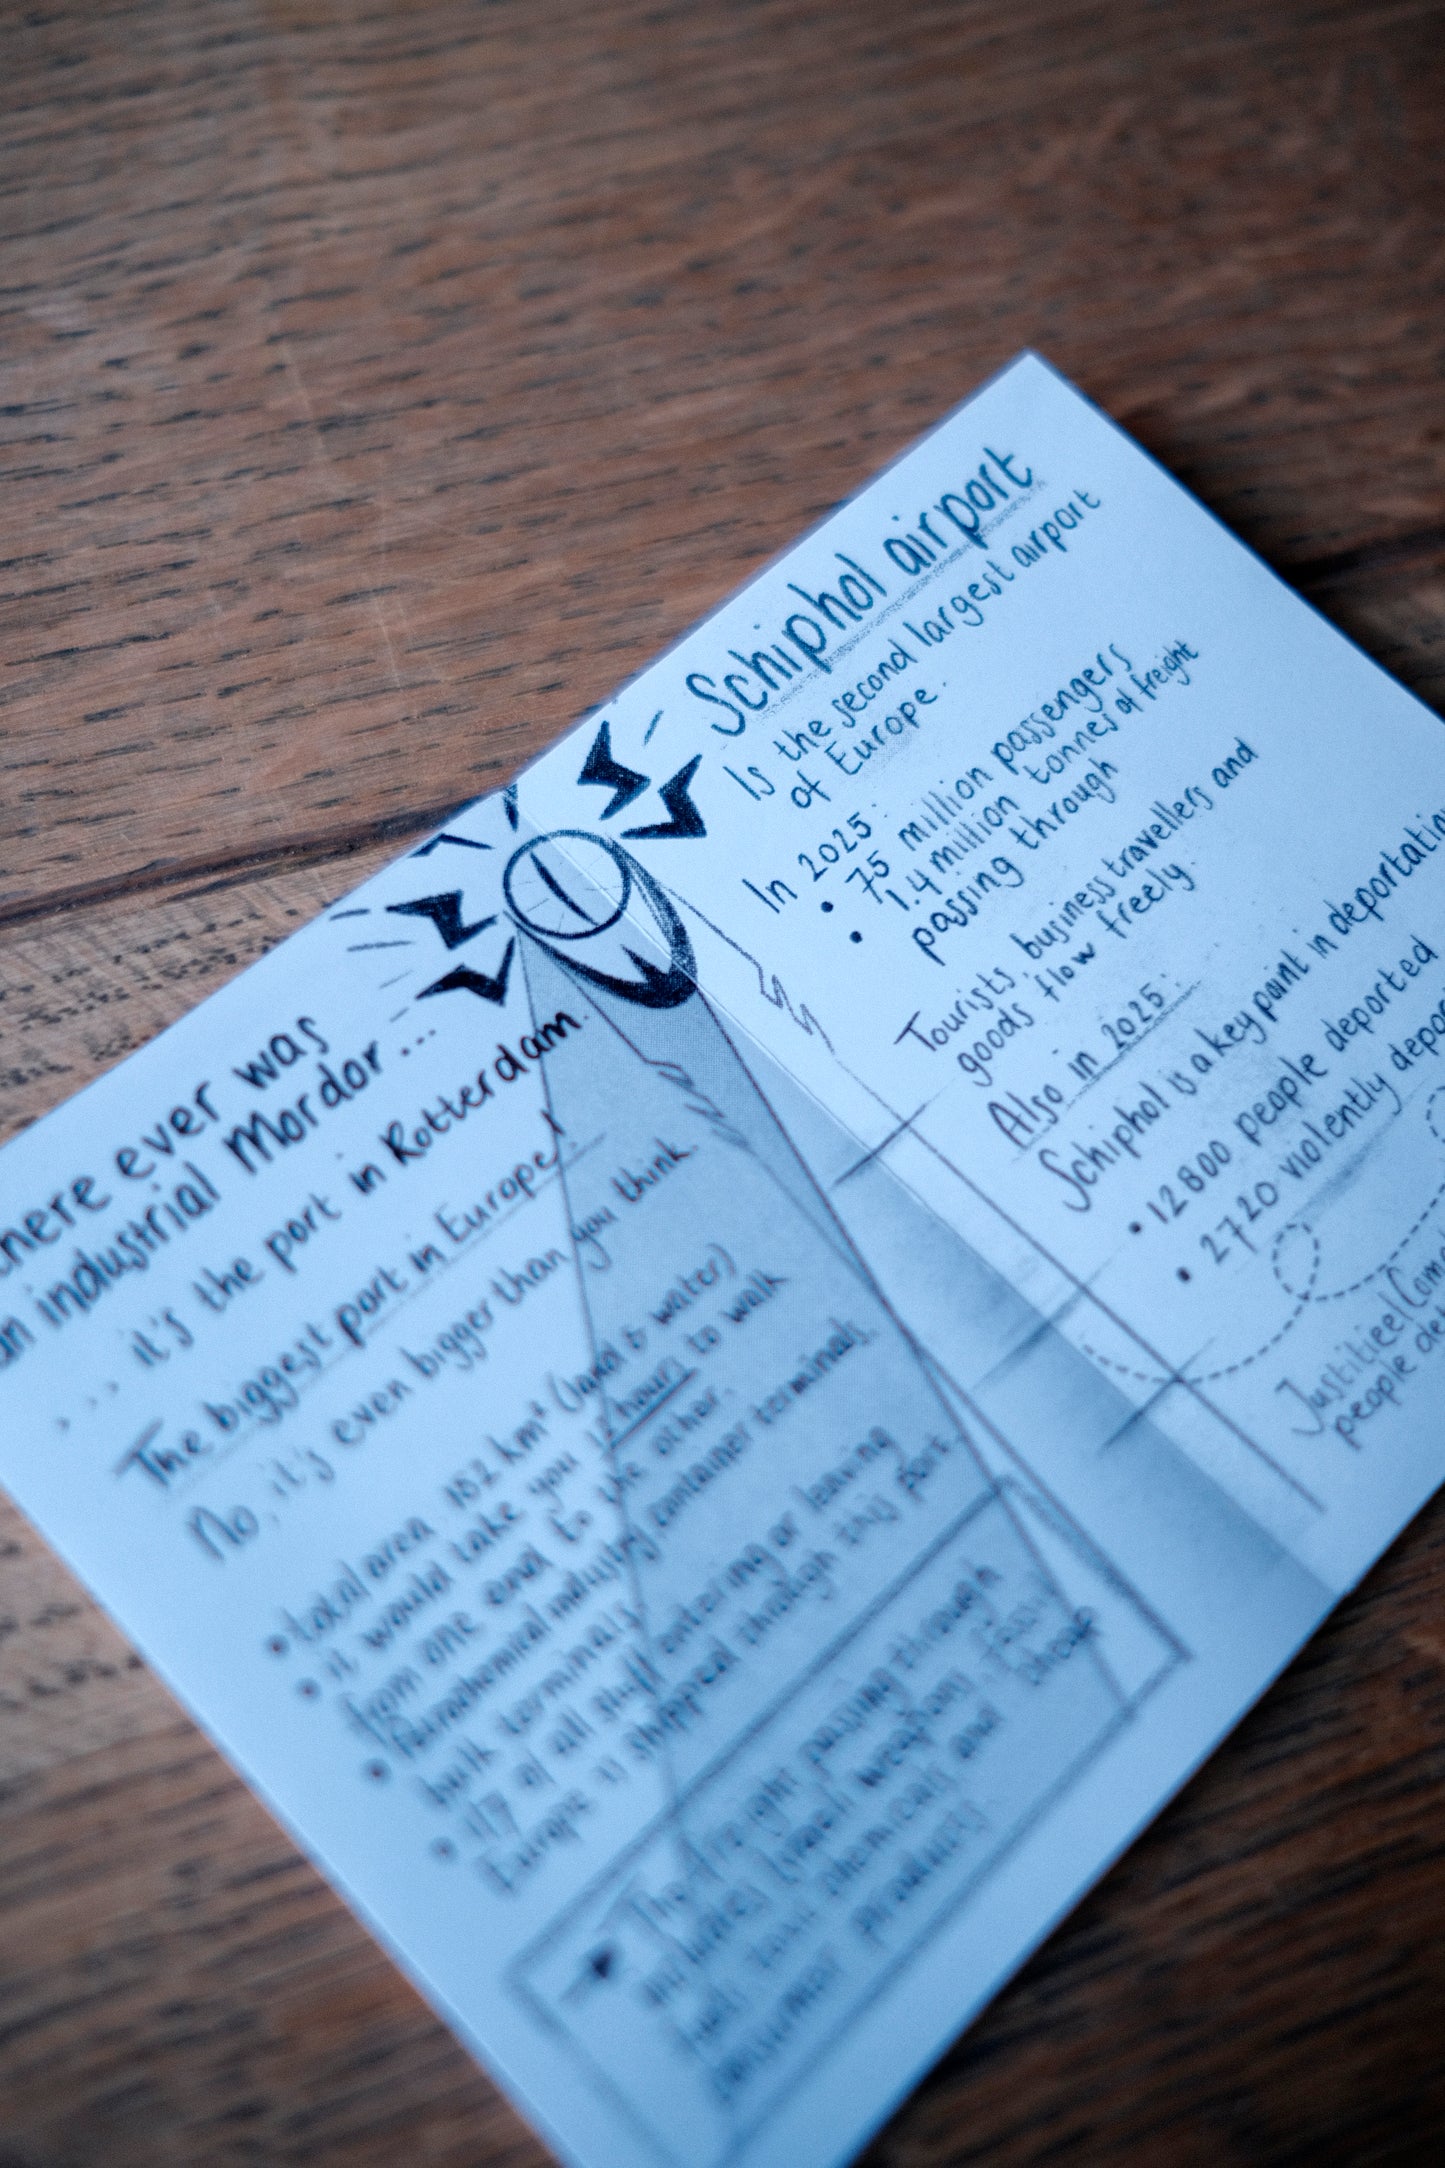 there ever was
an industrial Mordor...
>>> it's the port in Rotterdam.
The biggest port in Europe!
No, it's even bigger than you think.
• total area 152 km² (land & water)
• it would take you 12 hours to walk
from one end to the other.
• Petrochemical industry, container terminals,
bulk terminals
• 1/7 of all stuff entering or leaving
Europe is shipped through this port.
The freight passing through
includes (small) weapons, fossil
fuels, toxic chemicals and
consumer products
Schiphol airport
Is the second largest airport
of Europe.
In 2025:
• 75 million passengers
• 1.4 million tonnes of freight
passing through
Tourists, business travellers and
goods flow freely.
Also in 2025:
Schiphol is a key point in deportating
• 12800 people deported
• 2720 violently
Justitieel
people